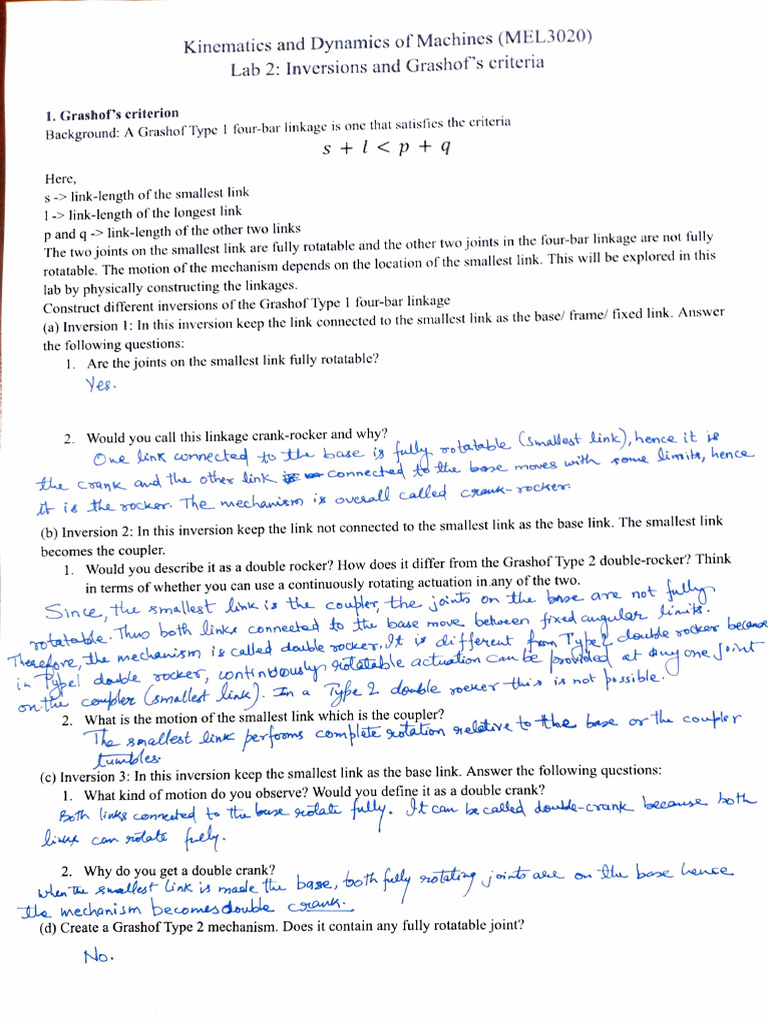 Kinematics and Dynamics of Machines (MEL3020)
Lab 2: Inversions and Grashof's criteria
1. Grashof's criterion
Background: A Grashof Type 1 four-bar linkage is one that satisfies the criteria
s + l < p + q
Here,
s -> link-length of the smallest link
l -> link-length of the longest link
p and q -> link-length of the other two links
The two joints on the smallest link are fully rotatable and the other two joints in the four-bar linkage are not fully
rotatable. The motion of the mechanism depends on the location of the smallest link. This will be explored in this
lab by physically constructing the linkages.
Construct different inversions of the Grashof Type 1 four-bar linkage
(a) Inversion 1: In this inversion keep the link connected to the smallest link as the base/ frame/ fixed link. Answer
the following questions:
1. Are the joints on the smallest link fully rotatable?
Yes.
2. Would you call this linkage crank-rocker and why?
One link connected to the base is fully rotatable (smallest link), hence it is
the crank and the other link connected to the base moves with some limits, hence
it is the rocker. The mechanism is overall called crank-rocker.
(b) Inversion 2: In this inversion keep the link not connected to the smallest link as the base link. The smallest link
becomes the coupler.
1. Would you describe it as a double rocker? How does it differ from the Grashof Type 2 double-rocker? Think
in terms of whether you can use a continuously rotating actuation in any of the two.
Since, the smallest link is the coupler, the joints on the base are not fully
rotatable. Thus both links connected to the base move between fixed angular limits.
Therefore, the mechanism is called double rocker, It is different from Type 2 double rocker because
in Type1 double rocker, continuously rotatable actuation can be provided at any one joint
on the coupler (smallest link). In a Type 2 double rocker this is not possible.
2. What is the motion of the smallest link which is the coupler?
The smallest link performs complete rotation relative to the base or the coupler
tumbles.
(c) Inversion 3: In this inversion keep the smallest link as the base link. Answer the following questions:
1. What kind of motion do you observe? Would you define it as a double crank?
Both links connected to the base rotate fully. It can be called double-crank because both
links can rotate fully.
2. Why do you get a double crank?
When the smallest link is made the base, both fully rotating joints are on the base hence
the mechanism becomes double crank.
(d) Create a Grashof Type 2 mechanism. Does it contain any fully rotatable joint?
No.